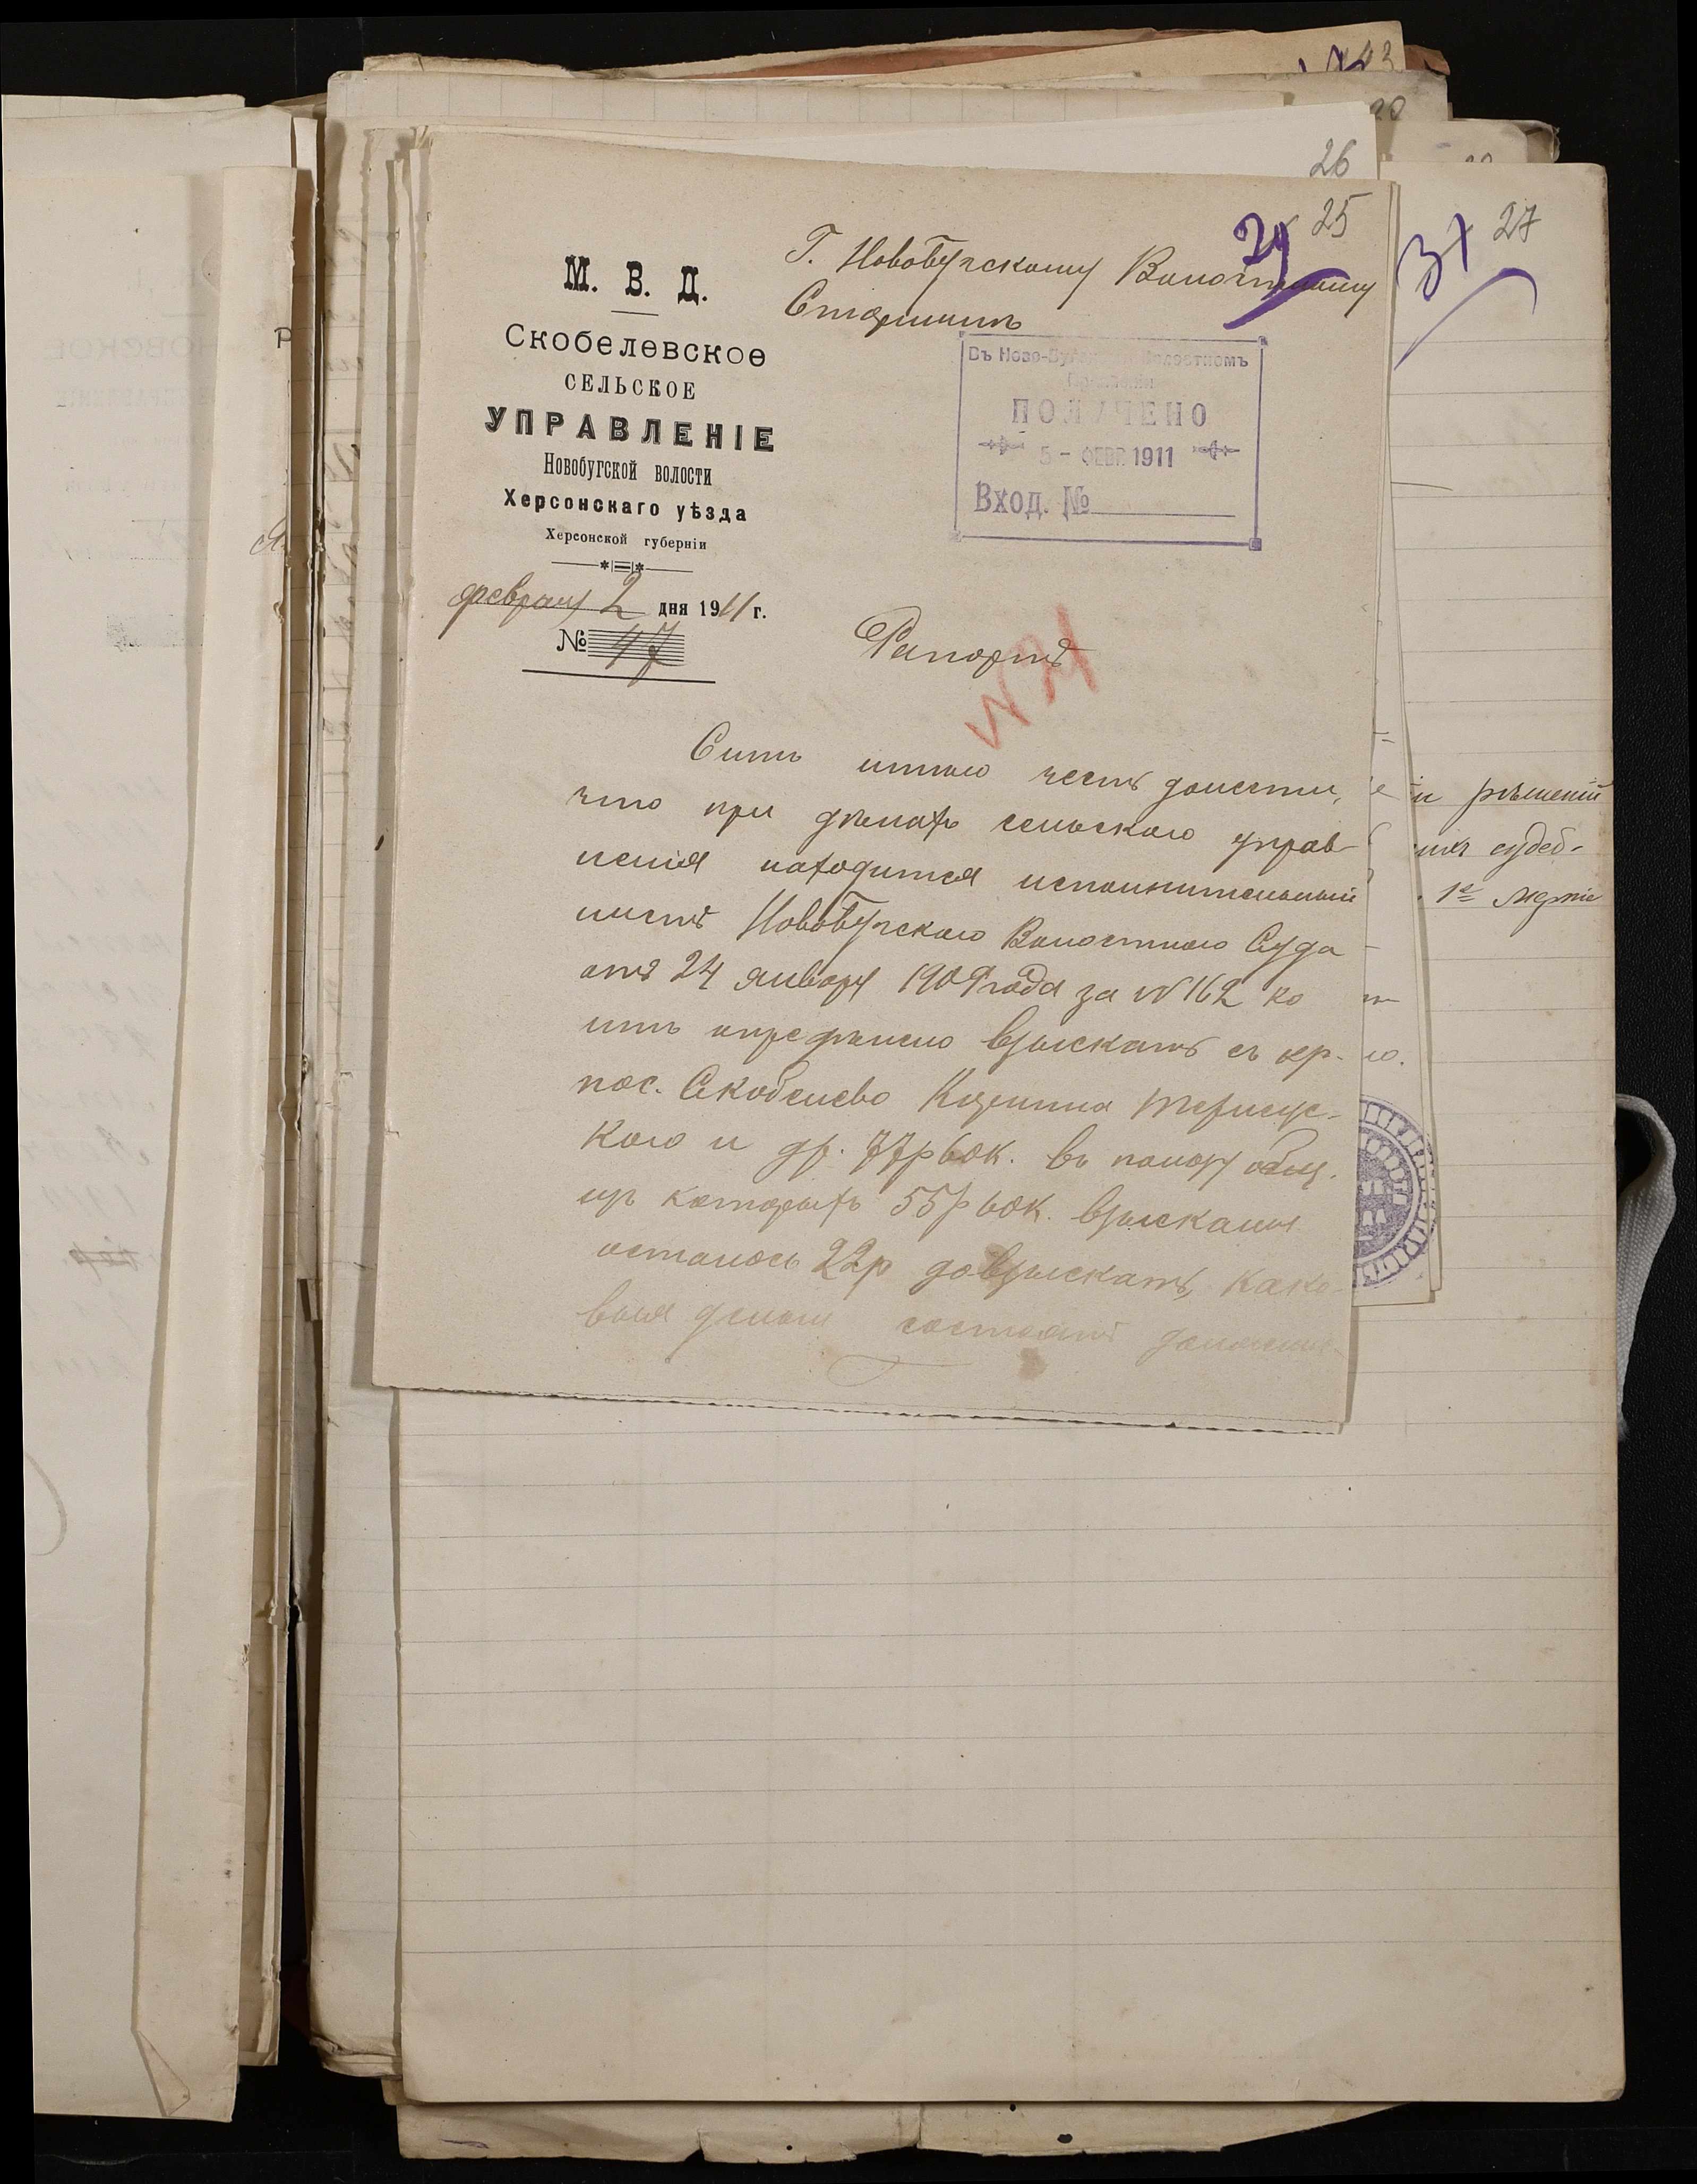 26
25
27
Г. Новобугскому Волостному
Старшинѣ
М. В. Д.
Скобелевское
СЕЛЬСКОЕ
УПРАВЛЕНІЕ
Новобугской волости
Херсонскаго уѣзда
Херсонской губерніи
февраля 2 дня 1911 г.
№ 47
Въ Ново-Бугскомъ Волостномъ
Правленіи
ПОЛУЧЕНО
5 - ФЕВР. 1911
Вход. №
Рапортъ
Симъ имѣю честь донести,
что при дѣлахъ сельскаго управ-
ленія находится исполнительный
листъ Новобугскаго Волостного Суда
отъ 24 января 1909 года за № 162 ко
имъ опредѣлено взыскать съ кр.
пос. Скобелево
каго и др. 77р 60к. въ пользу общ.
изъ которыхъ 55р 60к. взысканы
осталось 22р довзыскать, како-
выя деньги состоятъ
и рѣшеній
ихъ судеб-
1е Марта